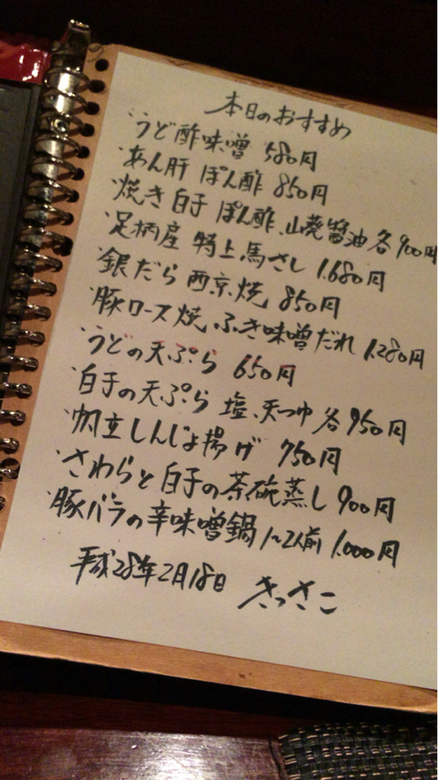 本日のおすすめ
・うど酢味噌 580円
・あん肝 ぽん酢 850円
・焼き白子 ぽん酢、山葵醤油 各900円
・足柄産 特上馬さし 1.680円
・銀だら西京焼 850円
・豚ロース焼、ふき味噌だれ 1.280円
・うどの天ぷら 650円
・白子の天ぷら 塩、天つゆ 各950円
・帆立しんじょ揚げ 750円
・さわらと白子の茶碗蒸し 900円
・豚バラの辛味噌鍋 1〜2人前 1.000円
平成28年2月18日 きっさこ